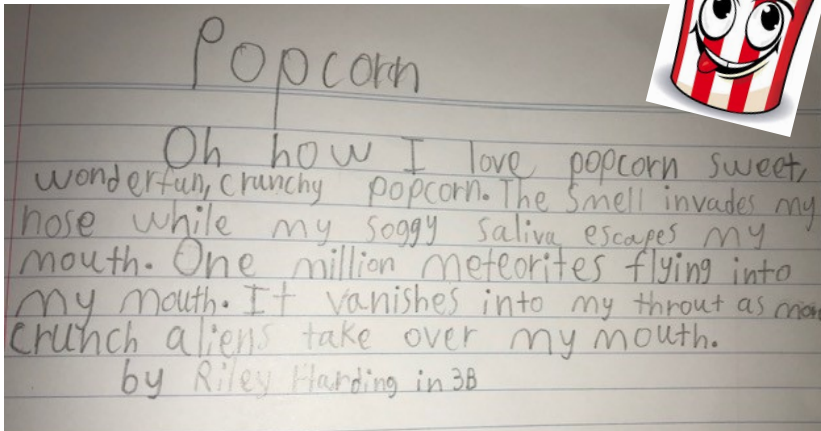 Popcorn
Oh how I love popcorn sweet,
wonderfun, crunchy popcorn. The smell invades my
nose while my soggy saliva escapes my
mouth. One million meteorites flying into
my mouth. It vanishes into my throut as
crunch aliens take over my mouth.
by Riley Harding in 3B